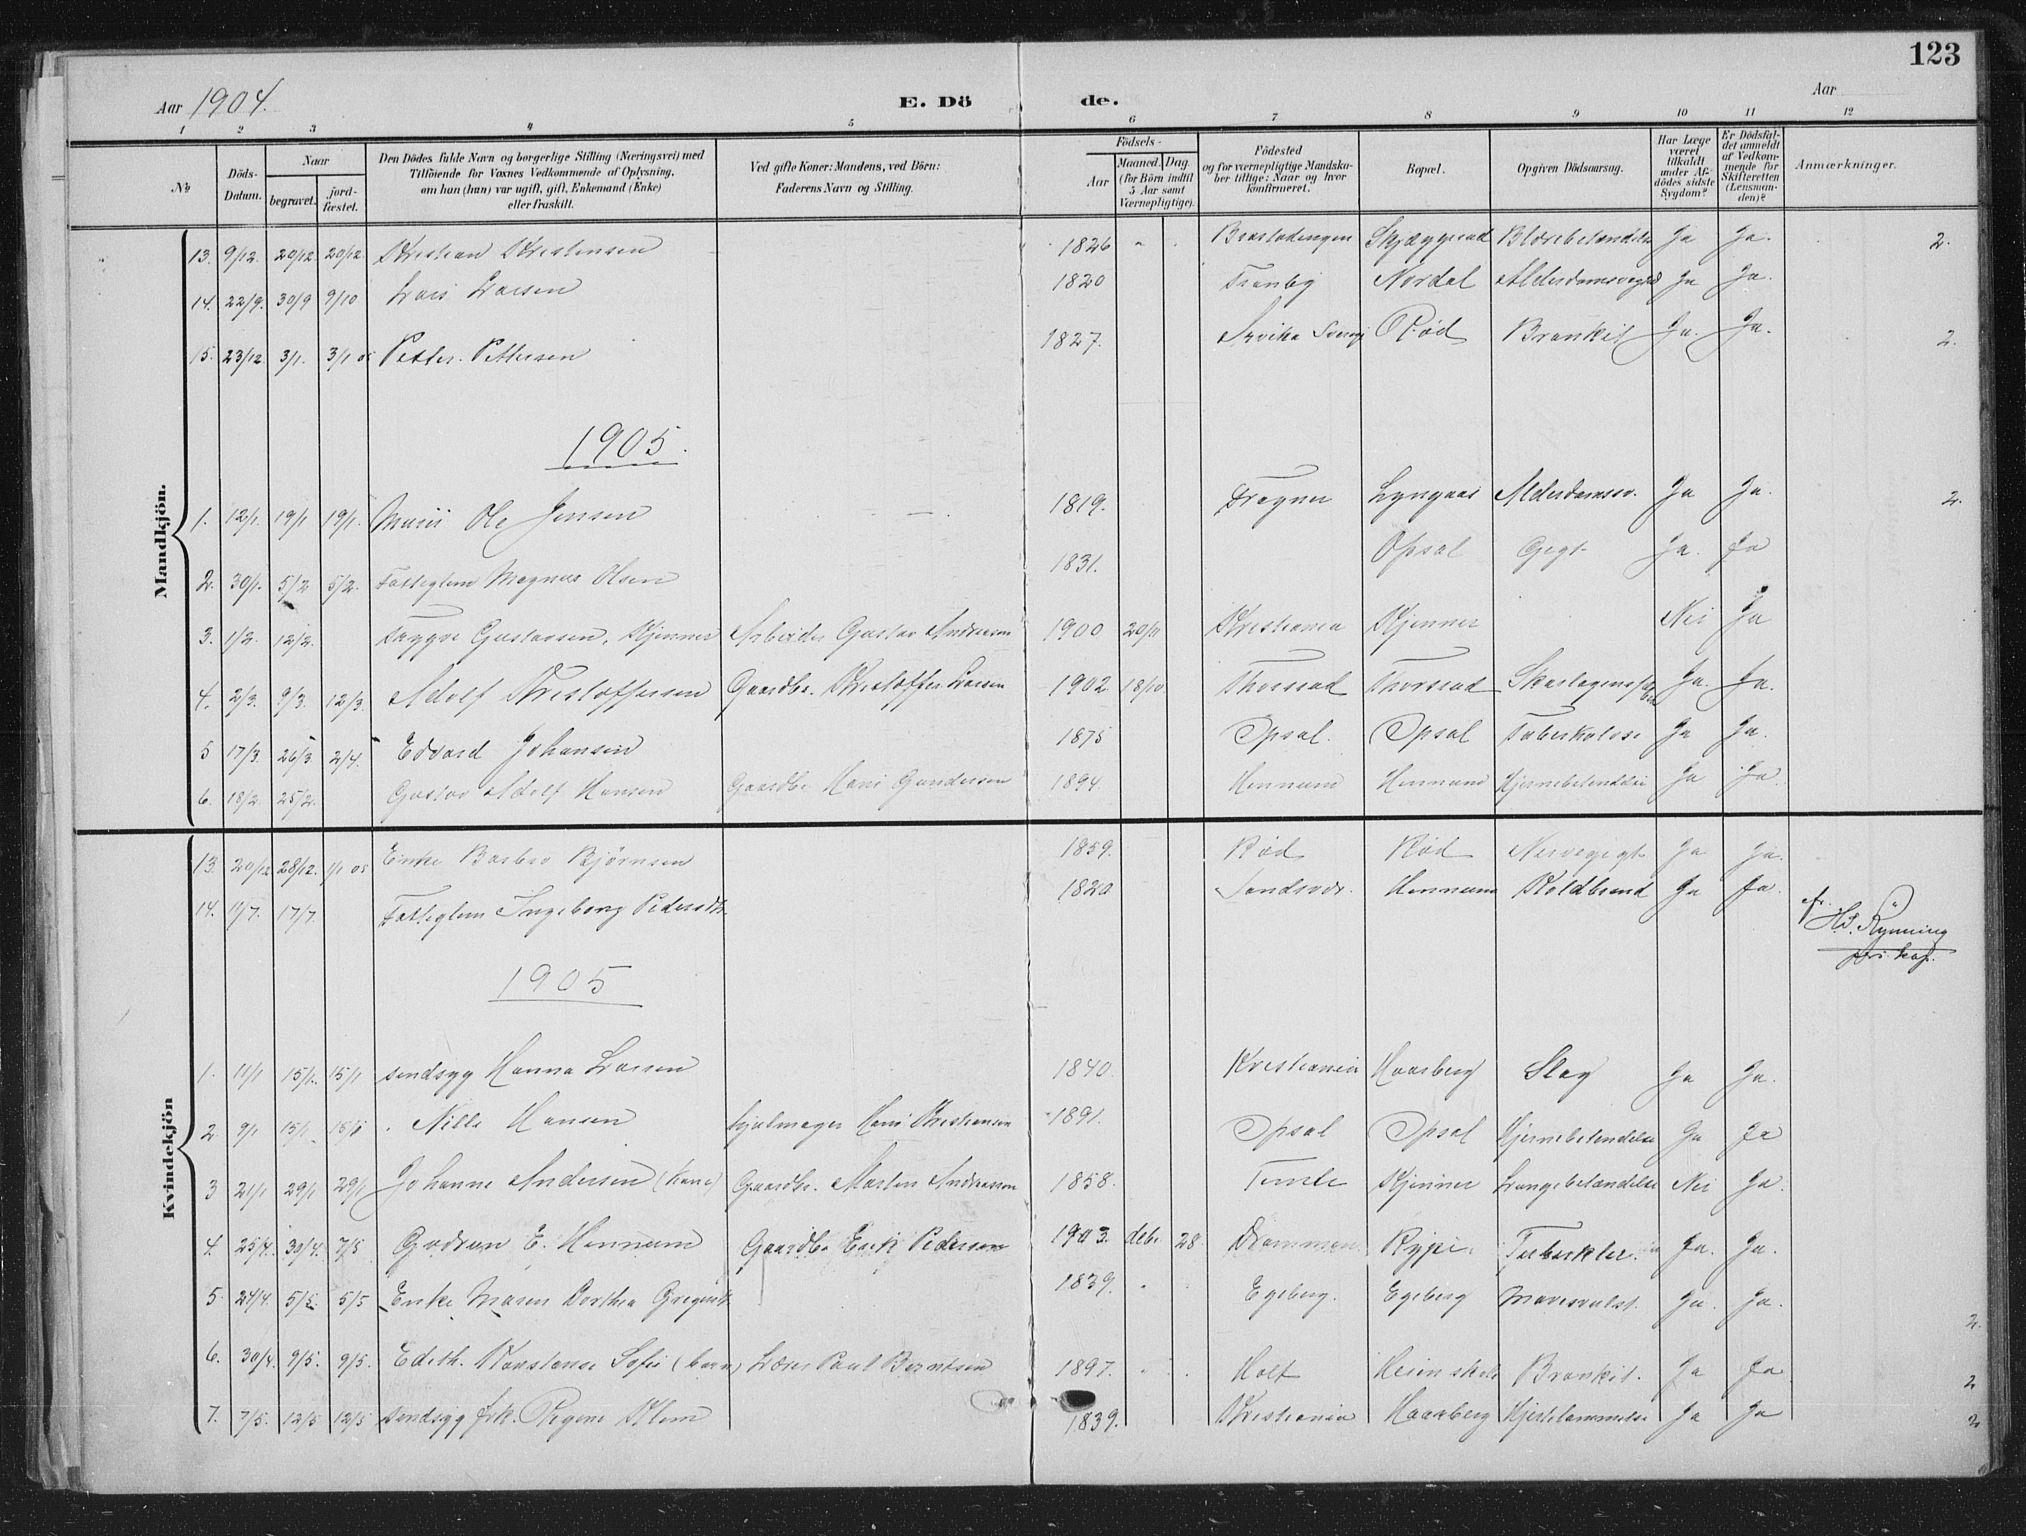 123
Aar 1904. E. Dö de. Aar
1 2 3 4 5 6 7 8 9 10 11 12
No Döds-Datum. Naar begravet. jord-fæstet. Den Dödes fulde Navn og borgerlige Stilling (Næringsvei) med Tilföiende for Voxnes Vedkommende af Oplysning, om han (hun) var ugift, gift, Enkemand (Enke) eller fraskilt. Ved gifte Koner: Mandens, ved Börn: Faderens Navn og Stilling. Födsels- Aar Maaned. Dag. (for Börn indtil 5 Aar samt Værnepligtige). Födested og for værnepligtige Mandskaber tillige: Naar og hvor konfirmeret. Bopæl. Opgiven Dödsaarsag. Har Læge været tilkaldt under Afdödes sidste Sygdom? Er Dödsfaldet anmeldt af Vedkommende for Skifteretten (Lensmanden)? Anmærkninger.
Mandkjön.
13. 9/12. 20/12. 20/12. Kristian Kristensen 1826 Ja Ja. 2.
14. 22/9. 30/9 9/10 Lars Larsen 1820 Tranby Nordal Ja Ja.
15. 23/12. 3/1. 3/1 05 Petter Pettersen 1827. Rød Bronkit Ja. Ja. 2.
1905.
1. 12/1. 19/1 19/1. Ole Jensen 1819. Lyngaas Alderdomssv. Ja Ja. 2.
2. 30/1. 5/2 5/2. Fattiglem Magnus Olsen 1831. Opsal Gigt Ja. Ja
3. 1/2. 12/2. Trygve Gustavsen, Kjenner Arbeider Gustav Andresen 1900 20/11 Kristiania Kjenner Nei Ja
4. 2/3. 9/3. 12/3. Adolf Kristoffersen Gaardbr. Kristoffer Larsen 1902 18/10. Thorsrud Thorsrud Ja. Ja.
5 17/3. 26/3 2/4. Edvard Johansen 1875 Opsal. Opsal Tuberkulose Ja Ja.
6. 18/2. 25/2. Gustav Adolf Hansen Gaardbr. Hans Gundersen 1894 Hennum Hennum Hjernebetændelse Ja Ja.
Kvindekjön
13. 20/12 28/12. 1/1 05 Enke Barbro Bjørnsen 1859. Rød Rød Nervegigt Ja Ja.
14. 11/7. 17/7. Fattiglem Ingeborg Pedersdtr. 1820 Sandsvær. Hennum Koldbrand Ja Ja.
H.S. Rynning
1905
1. 11/1 15/1. 15/1 sindsyg Hanna Larsen 1840. Kristiania Haarberg Slag Ja Ja.
2 9/1 15/1. 15/1 Nille Hansen Hjulmager Hans Kristiansen 1891. Opsal Opsal Hjernebetændelse Ja Ja
3 21/1 29/1 29/1 Johanne Andersen (Kone) Gaardbr. Martin Andresen 1858. Kjenner Lungebetændelse Nei Ja.
4. 25/4. 30/4. 7/5 Gudrun E. Hennum Gaardbr. Erik Pedersen 1903. debr. 28. Drammen Rypi Tuberkler. Ja. Ja.
5. 24/4. 5/5. 5/5 Enke Maren Dorthea 1839. Egeberg. Egeberg Mavesvulst. Ja. Ja.
2.
6. 30/4. 9/5. 9/5. Edith Konstanse Sofie (barn) Lærer Paul Berntsen 1897. Holt Bronkit. Ja Ja. 2
7. 7/5. 12/5 12/5 sindsyg frk. Regine Klem 1839. Kristiania Haarberg Hjertelammelse Ja Ja 2